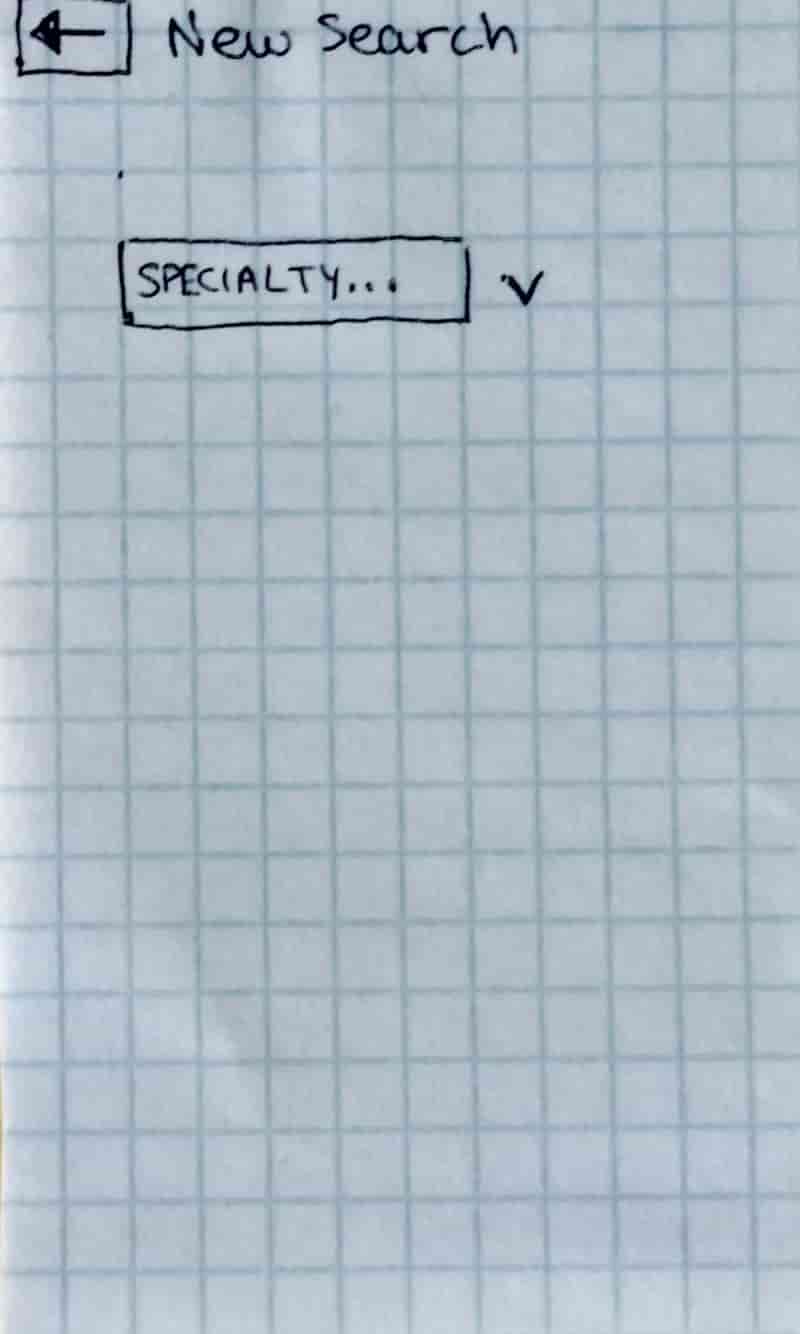 New Search
SPECIALTY...